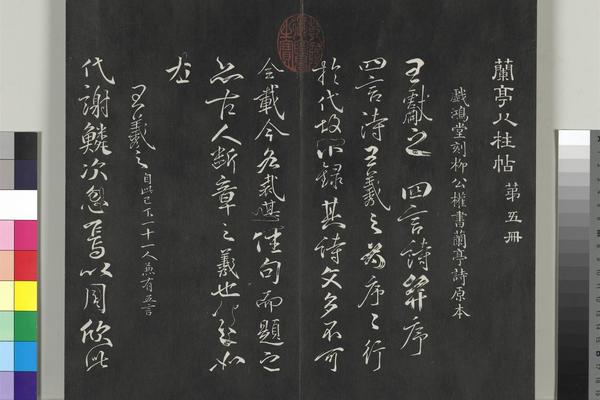 蘭亭八柱帖 第五冊
戲鴻堂刻柳公權書蘭亭詩原本
王獻之四言詩并序
四言詩王羲之為序序行
於代故不錄其詩文多不可
全載今各裁佳句而題之
亦古人斷章之義也如
左
王羲之 自此已下一十一人兼有五言
代謝鱗次忽焉以周欣此